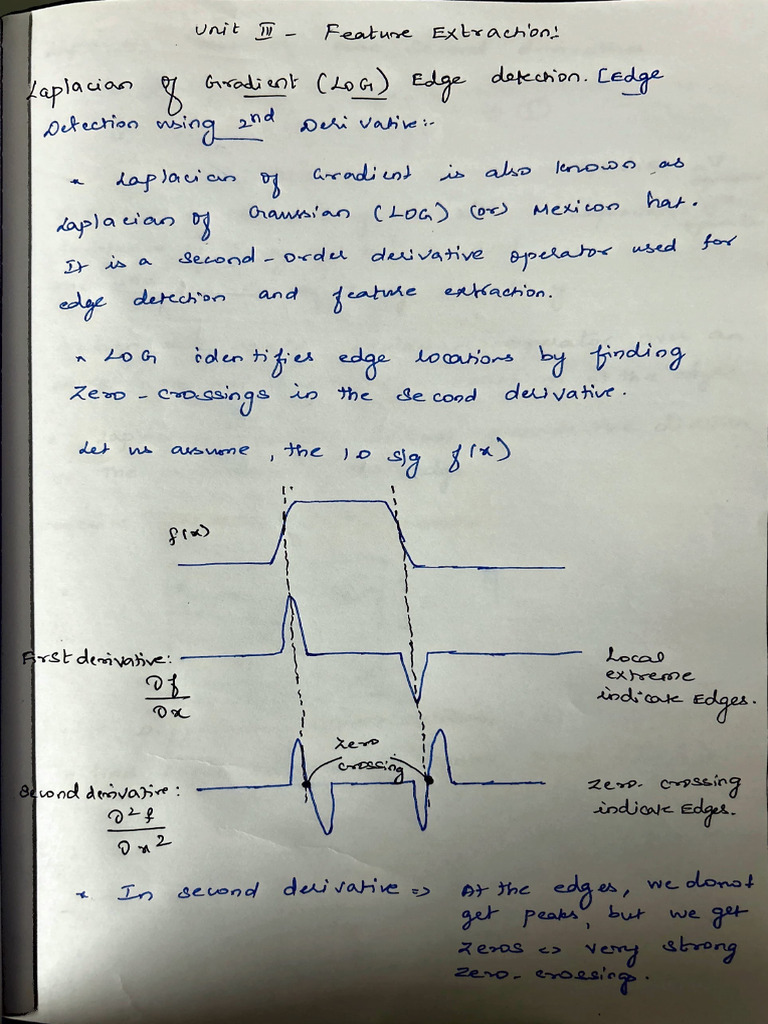 Unit III - Feature Extraction:
Laplacian of Gradient (LOG) Edge detection. [Edge
Detection using 2nd Derivative:-
* Laplacian of Gradient is also known as
Laplacian of Gaussian (LOG) (or) Mexicon hat.
It is a second-order derivative operator used for
edge detection and feature extraction.
* LOG identifies edge locations by finding
Zero-crossings in the second derivative.
Let us assume, the 1D sig f(x)
f(x)
First derivative:
∂f
∂x
Local
extreme
indicate Edges.
Zero
crossing
Second derivative:
∂²f
∂x²
Zero-crossing
indicate Edges.
* In second derivative => At the edges, we donot
get peaks, but we get
zeros <=> very strong
zero-crossing.